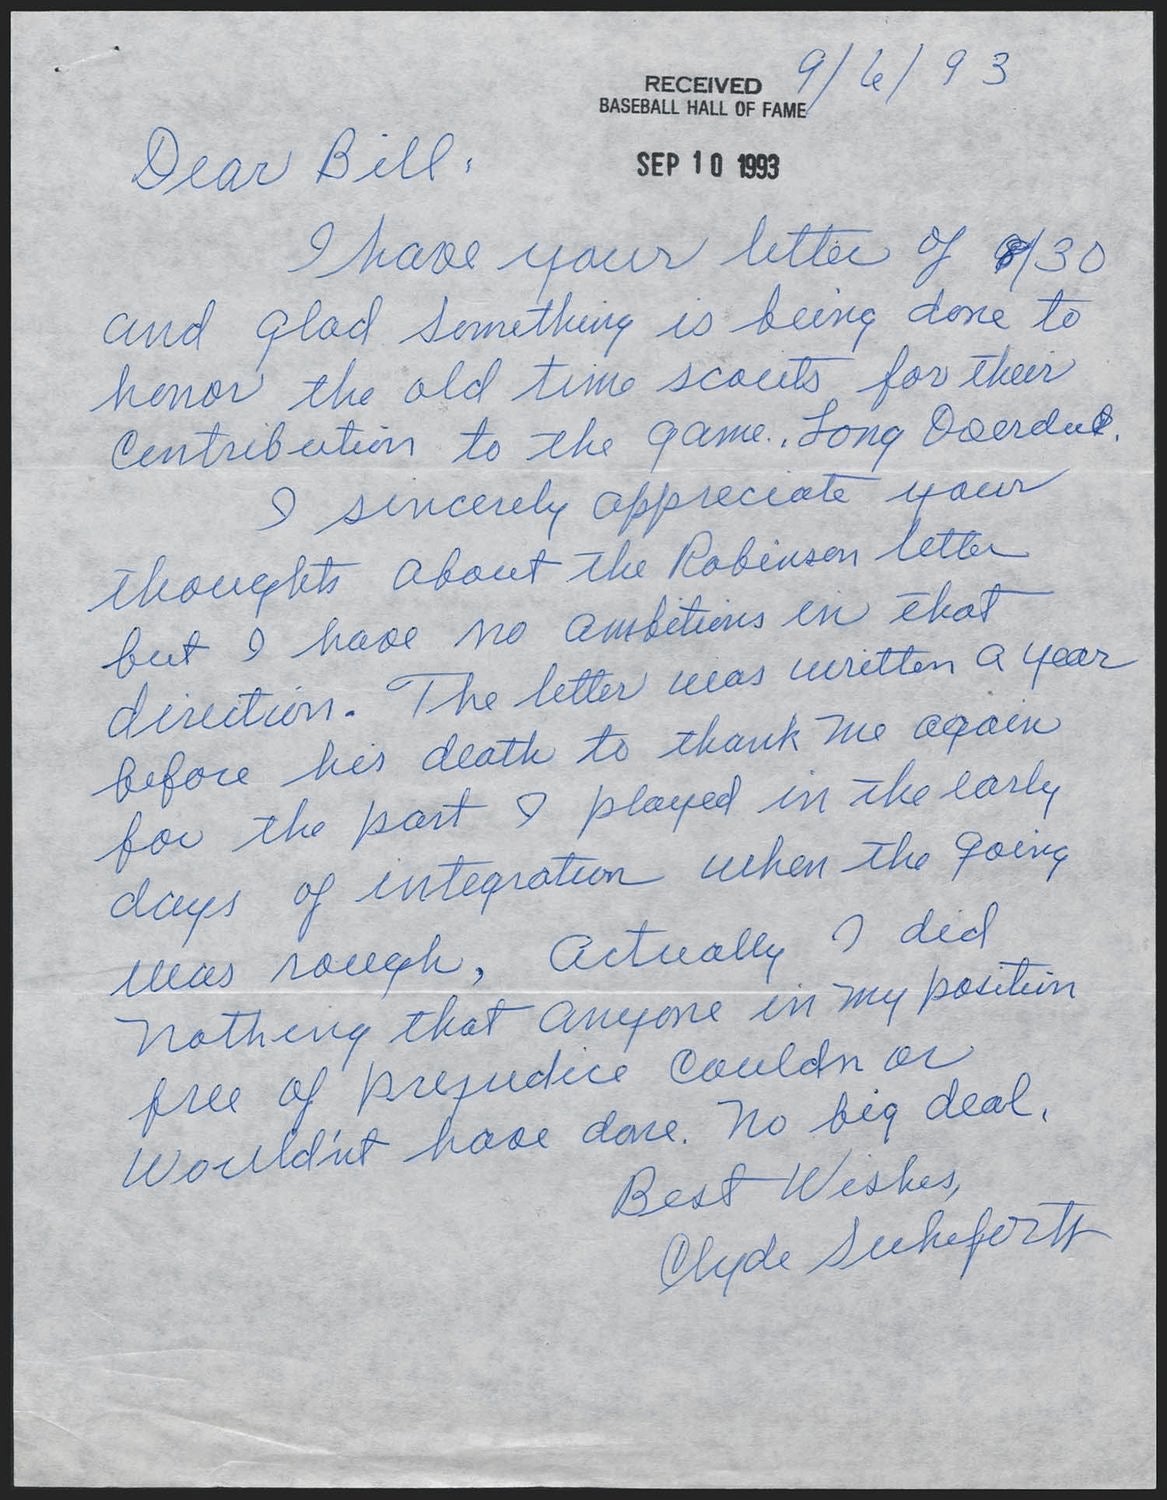 9/6/93
RECEIVED
BASEBALL HALL OF FAME
SEP 10 1993
Dear Bill,
I have your letter of 8/30
and glad something is being done to
honor the old time scouts for their
contribution to the game. Long Overdue.
I sincerely appreciate your
thoughts about the Robinson letter
but I have no ambitions in that
direction. The letter was written a year
before his death to thank me again
for the part I played in the early
days of integration when the going
was rough. Actually I did
nothing that anyone in my position
free of prejudice couldn or
wouldn't have done. No big deal.
Best Wishes,
Clyde Sukeforth